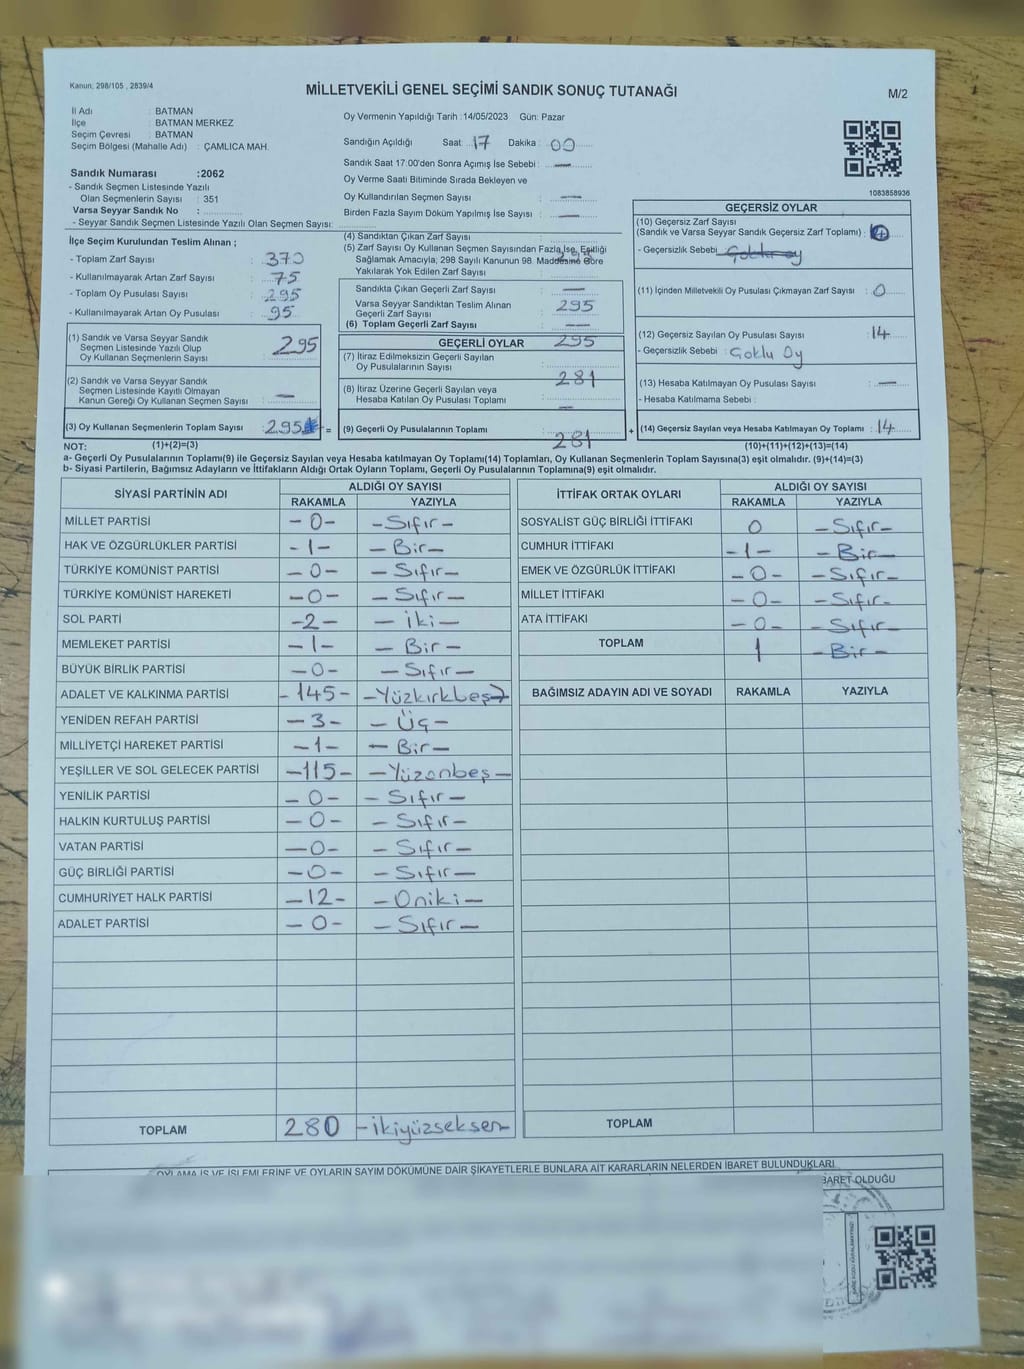 Kanun: 298/105 , 2839/4
MİLLETVEKİLİ GENEL SEÇİMİ SANDIK SONUÇ TUTANAĞI
M/2
İl Adı : BATMAN
İlçe : BATMAN MERKEZ
Seçim Çevresi : BATMAN
Seçim Bölgesi (Mahalle Adı) : ÇAMLICA MAH.
Sandık Numarası :2062
- Sandık Seçmen Listesinde Yazılı
Olan Seçmenlerin Sayısı : 351
Varsa Seyyar Sandık No :
- Seyyar Sandık Seçmen Listesinde Yazılı Olan Seçmen Sayısı:
Oy Vermenin Yapıldığı Tarih :14/05/2023 Gün: Pazar
Sandığın Açıldığı Saat : 17 Dakika : 00
Sandık Saat 17:00'den Sonra Açımış İse Sebebi : —
Oy Verme Saati Bitiminde Sırada Bekleyen ve
Oy Kullandırılan Seçmen Sayısı : —
Birden Fazla Sayım Döküm Yapılmış İse Sayısı : —
1083858936
İlçe Seçim Kurulundan Teslim Alınan ;
- Toplam Zarf Sayısı : 370
- Kullanılmayarak Artan Zarf Sayısı : 75
- Toplam Oy Pusulası Sayısı : 295
- Kullanılmayarak Artan Oy Pusulası : 95
(1) Sandık ve Varsa Seyyar Sandık
Seçmen Listesinde Yazılı Olup
Oy Kullanan Seçmenlerin Sayısı : 295
(2) Sandık ve Varsa Seyyar Sandık
Seçmen Listesinde Kayıtlı Olmayan
Kanun Gereği Oy Kullanan Seçmen Sayısı : —
(3) Oy Kullanan Seçmenlerin Toplam Sayısı : 295 =
(4) Sandıktan Çıkan Zarf Sayısı :
(5) Zarf Sayısı Oy Kullanan Seçmen Sayısından Fazla İse, Eşitliği
Sağlamak Amacıyla; 298 Sayılı Kanunun 98. Maddesine Göre
Yakılarak Yok Edilen Zarf Sayısı :
Sandıkta Çıkan Geçerli Zarf Sayısı : —
Varsa Seyyar Sandıktan Teslim Alınan
Geçerli Zarf Sayısı : 295
(6) Toplam Geçerli Zarf Sayısı : —
GEÇERLİ OYLAR 295
(7) İtiraz Edilmeksizin Geçerli Sayılan
Oy Pusulalarının Sayısı : 281
(8) İtiraz Üzerine Geçerli Sayılan veya
Hesaba Katılan Oy Pusulası Toplamı : —
(9) Geçerli Oy Pusulalarının Toplamı : 281 +
GEÇERSİZ OYLAR
(10) Geçersiz Zarf Sayısı
(Sandık ve Varsa Seyyar Sandık Geçersiz Zarf Toplamı) :
- Geçersizlik Sebebi :
(11) İçinden Milletvekili Oy Pusulası Çıkmayan Zarf Sayısı : 0
(12) Geçersiz Sayılan Oy Pusulası Sayısı : 14
- Geçersizlik Sebebi : Çoklu Oy
(13) Hesaba Katılmayan Oy Pusulası Sayısı : —
- Hesaba Katılmama Sebebi :
(14) Geçersiz Sayılan veya Hesaba Katılmayan Oy Toplamı : 14
NOT: (1)+(2)=(3) (10)+(11)+(12)+(13)=(14)
a- Geçerli Oy Pusulalarının Toplamı(9) ile Geçersiz Sayılan veya Hesaba katılmayan Oy Toplamı(14) Toplamları, Oy Kullanan Seçmenlerin Toplam Sayısına(3) eşit olmalıdır. (9)+(14)=(3)
b- Siyasi Partilerin, Bağımsız Adayların ve İttifakların Aldığı Ortak Oyların Toplamı, Geçerli Oy Pusulalarının Toplamına(9) eşit olmalıdır.
SİYASİ PARTİNİN ADI ALDIĞI OY SAYISI
RAKAMLA YAZIYLA
MİLLET PARTİSİ -0- -Sıfır-
HAK VE ÖZGÜRLÜKLER PARTİSİ -1- -Bir-
TÜRKİYE KOMÜNİST PARTİSİ -0- -Sıfır-
TÜRKİYE KOMÜNİST HAREKETİ -0- -Sıfır-
SOL PARTİ -2- -İki-
MEMLEKET PARTİSİ -1- -Bir-
BÜYÜK BİRLİK PARTİSİ -0- -Sıfır-
ADALET VE KALKINMA PARTİSİ -145- -Yüzkırkbeş-
YENİDEN REFAH PARTİSİ -3- -Üç-
MİLLİYETÇİ HAREKET PARTİSİ -1- -Bir-
YEŞİLLER VE SOL GELECEK PARTİSİ -115- -Yüzonbeş-
YENİLİK PARTİSİ -0- -Sıfır-
HALKIN KURTULUŞ PARTİSİ -0- -Sıfır-
VATAN PARTİSİ -0- -Sıfır-
GÜÇ BİRLİĞİ PARTİSİ -0- -Sıfır-
CUMHURİYET HALK PARTİSİ -12- -Oniki-
ADALET PARTİSİ -0- -Sıfır-
TOPLAM 280 -ikiyüzseksen-
İTTİFAK ORTAK OYLARI ALDIĞI OY SAYISI
RAKAMLA YAZIYLA
SOSYALİST GÜÇ BİRLİĞİ İTTİFAKI 0 -Sıfır-
CUMHUR İTTİFAKI -1- -Bir-
EMEK VE ÖZGÜRLÜK İTTİFAKI -0- -Sıfır-
MİLLET İTTİFAKI -0- -Sıfır-
ATA İTTİFAKI -0- -Sıfır-
TOPLAM 1 -Bir-
BAĞIMSIZ ADAYIN ADI VE SOYADI RAKAMLA YAZIYLA
TOPLAM
OYLAMA İŞ VE İŞLEMLERİNE VE OYLARIN SAYIM DÖKÜMÜNE DAİR ŞİKAYETLERLE BUNLARA AİT KARARLARIN NELERDEN İBARET BULUNDUKLARI
BARET OLDUĞU